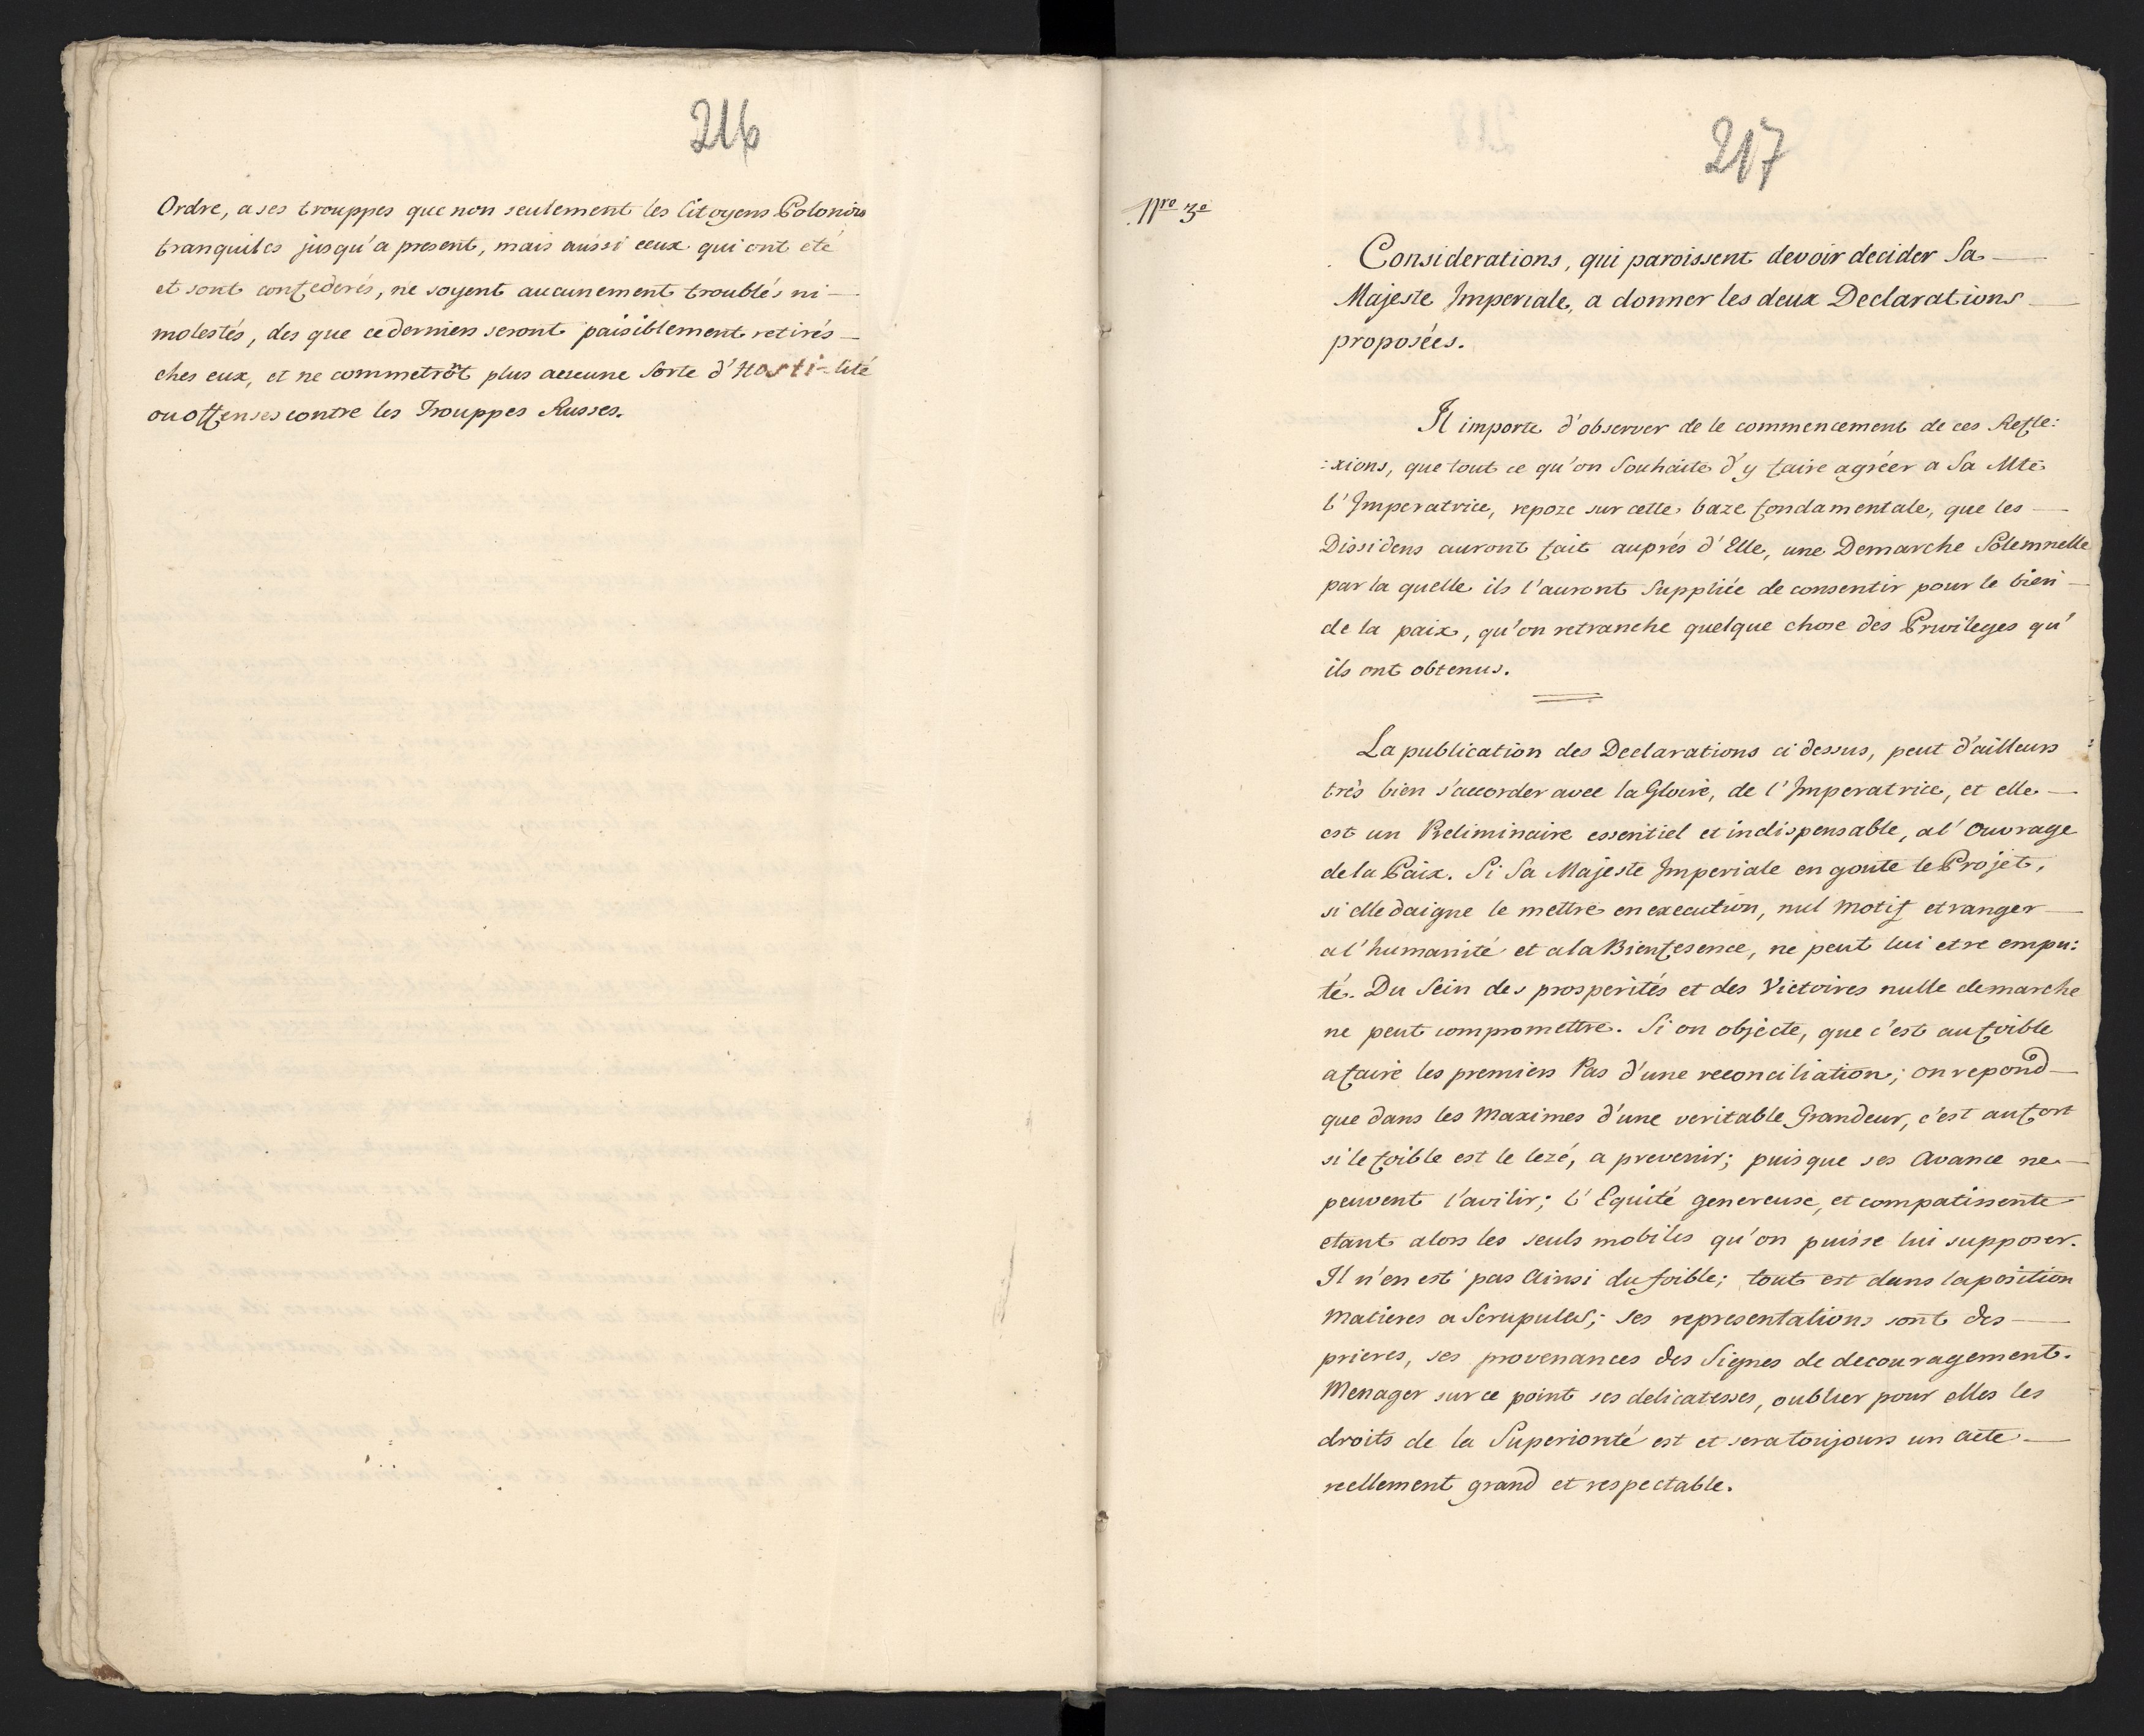 216
Ordre, a ses trouppes que non seulement les Citoyens Polonois
tranquiles jusqu'a present, mais aussi ceux qui ont eté
et sont confederés, ne soyent aucunement troublés ni —
molestés, des que ce derniers seront paisiblement retirés —
ches eux, et ne commetrōt plus aucune Sorte d'Hosti-lité
ou offenses contre les Trouppes Russes.
217
Nro 3o
Considerations, qui paroissent devoir decider Sa —
Majeste Imperiale, a donner les deux Declarations —
proposées.
Il importe d'observer de le commencement de ces Refle:
:xions, que tout ce qu'on Souhaite d'y faire agréer a Sa Mté
l'Imperatrice, repoze sur cette baze fondamentale, que les —
Dissidens auront fait auprés d'Elle, une Demarche Solemnelle
par la quelle ils l'auront Suppliée de consentir pour le bien —
de la paix, qu'on retranche quelque chose des Privileges qu'
ils ont obtenus.
La publication des Declarations ci dessus, peut d'ailleurs
trés bien s'accorder avec la Gloire, de l'Imperatrice, et elle —
est un Preliminaire essentiel et indispensable, a l'Ouvrage
de la Paix. Si Sa Majeste Imperiale en goute le Projet,
si elle daigne le mettre en execution, nul motif etranger —
a l'humanité et a la Bienfesence, ne peut lui etre empu:
té. Du Sein des prosperités et des Victoires nulle demarche
ne peut compromettre. Si on objecte, que c'est au foible
a faire les premiers Pas d'une reconciliation; on repond —
que dans les Maximes d'une veritable Grandeur, c'est au fort
si le foible est le lezé, a prevenir; puis que ses Avance ne —
peuvent l'avilir; l'Equité genereuse, et compatissente
etant alors les seuls mobiles qu'on puisse lui supposer.
Il n'en est pas Ainsi du foible; tout est dans la position
Matieres a Scrupules; ses representations sont des —
prieres, ses provenances des Signes de decouragement.
Menager sur ce point ses delicatesses, oublier pour elles les
droits de la Superiorité est et sera toujours un acte —
reellement grand et respectable.